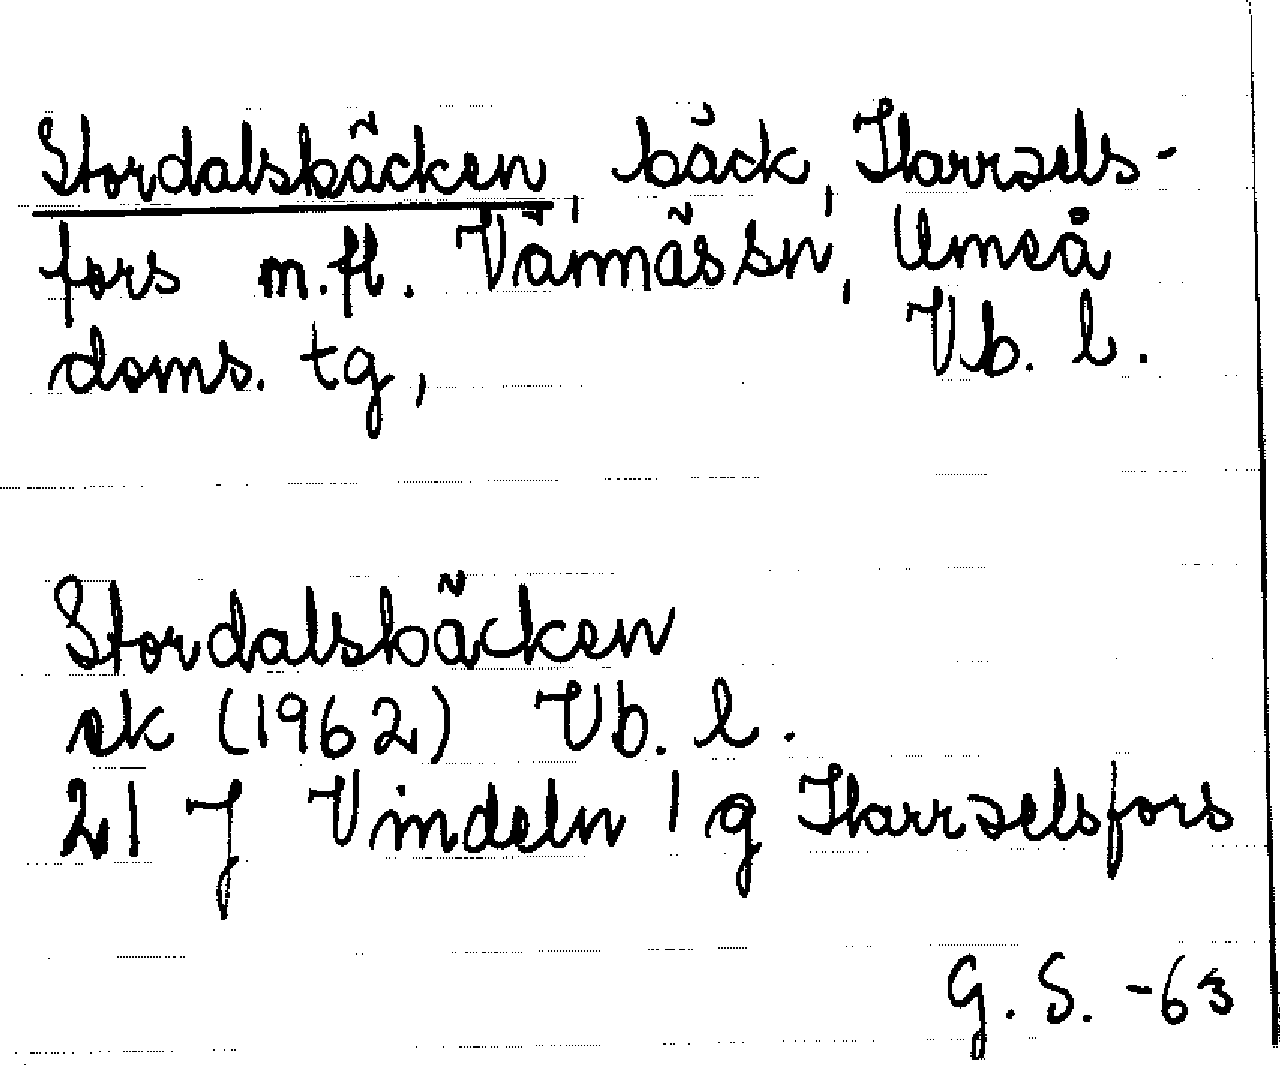 Stordalsbäcken, bäck, Harrsels-
fors m.fl. Vännäs sn, Umeå
doms. tg, Vb. l.
Stordalsbäcken
ek (1962) Vb. l.
21 J Vindeln 1 g Harrselsfors
G. S. -63